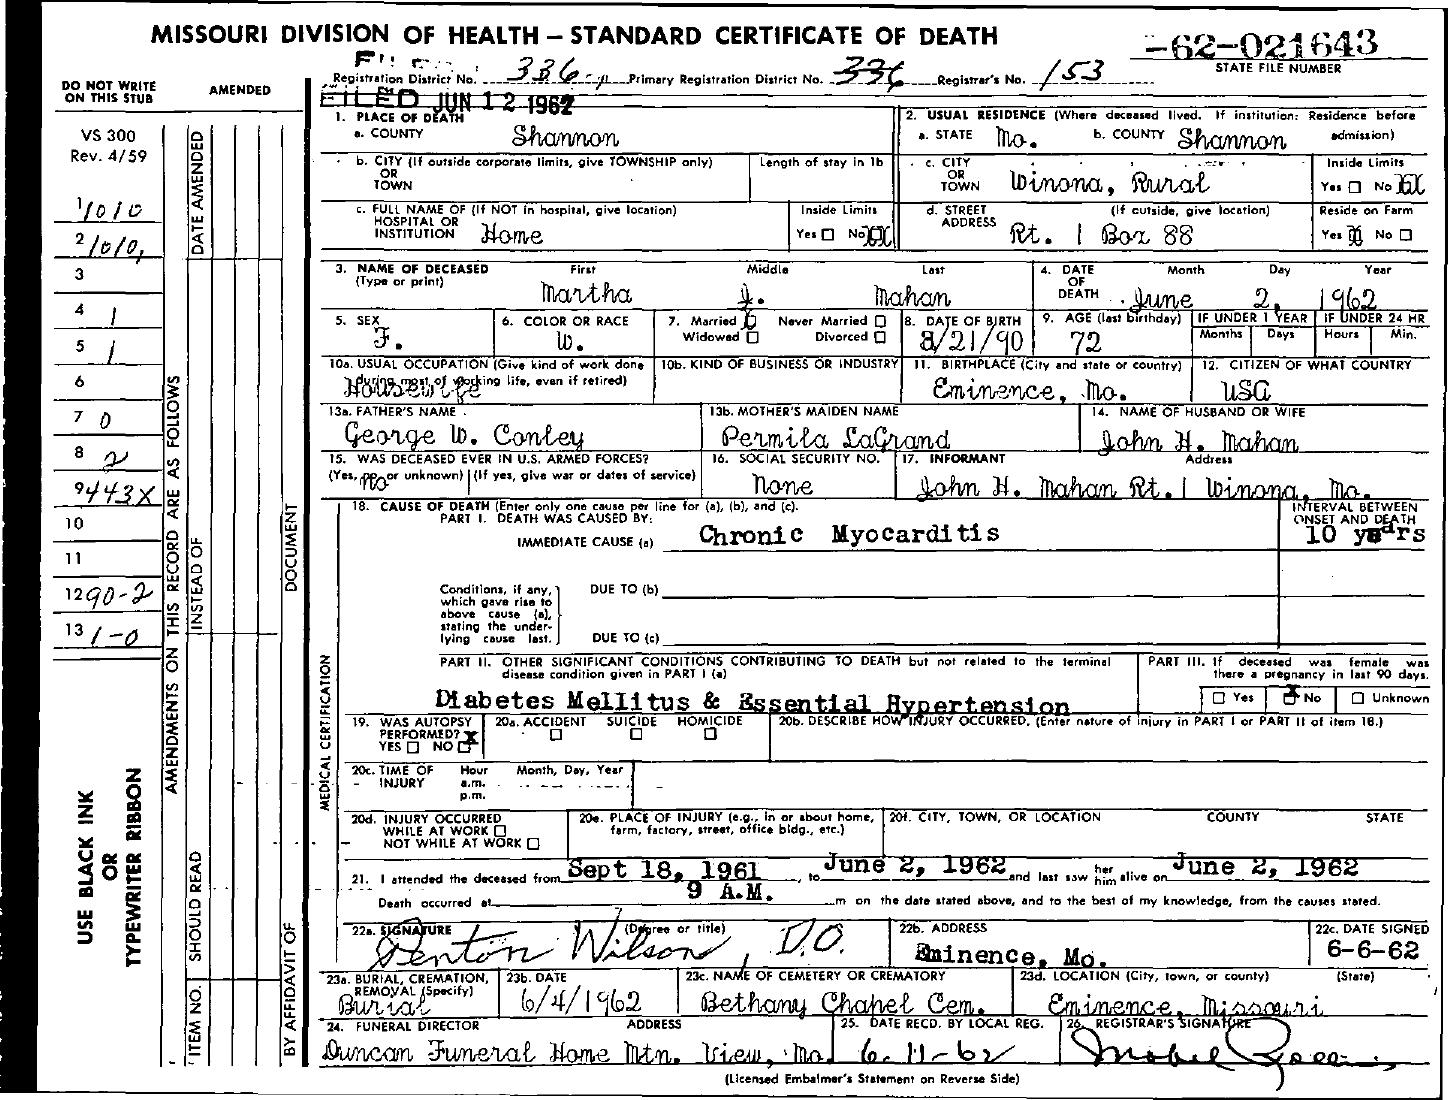 MISSOURI DIVISION OF HEALTH — STANDARD CERTIFICATE OF DEATH
-62-021643
STATE FILE NUMBER
Registration District No. 336 Primary Registration District No. 336 Registrar's No. 153
FILED JUN 12 1962
DO NOT WRITE
ON THIS STUB
AMENDED
VS 300
Rev. 4/59
1 1010
2 1010,
3
4 1
5 1
6
7 0
8 2
9 443X
10
11
12 90-2
13 1-0
USE BLACK INK
OR
TYPEWRITER RIBBON
AMENDMENTS ON THIS RECORD ARE AS FOLLOWS
DATE AMENDED
INSTEAD OF
SHOULD READ
ITEM NO.
DOCUMENT
BY AFFIDAVIT OF
MEDICAL CERTIFICATION
1. PLACE OF DEATH
a. COUNTY Shannon
2. USUAL RESIDENCE (Where deceased lived. If institution: Residence before admission)
a. STATE Mo. b. COUNTY Shannon
b. CITY (If outside corporate limits, give TOWNSHIP only)
OR
TOWN
Length of stay in 1b
c. CITY
OR
TOWN Winona, Rural
Inside Limits
Yes No XX
c. FULL NAME OF (If NOT in hospital, give location)
HOSPITAL OR
INSTITUTION Home
Inside Limits
Yes No XX
d. STREET ADDRESS (If outside, give location)
Rt. 1 Box 88
Reside on Farm
Yes X No
3. NAME OF DECEASED First Middle Last
(Type or print)
Martha J. Mahan
4. DATE OF DEATH Month Day Year
June 2, 1962
5. SEX
F.
6. COLOR OR RACE
W.
7. Married X Never Married
Widowed Divorced
8. DATE OF BIRTH
/21/90
9. AGE (last birthday)
72
IF UNDER 1 YEAR
Months Days
IF UNDER 24 HR
Hours Min.
10a. USUAL OCCUPATION (Give kind of work done
during most of working life, even if retired)
Housewife
10b. KIND OF BUSINESS OR INDUSTRY
11. BIRTHPLACE (City and state or country)
Eminence, Mo.
12. CITIZEN OF WHAT COUNTRY
USA
13a. FATHER'S NAME
George W. Conley
13b. MOTHER'S MAIDEN NAME
Permila LaGrand
14. NAME OF HUSBAND OR WIFE
John H. Mahan
15. WAS DECEASED EVER IN U.S. ARMED FORCES?
(Yes, no or unknown) (If yes, give war or dates of service)
no
16. SOCIAL SECURITY NO.
None
17. INFORMANT Address
John H. Mahan Rt. 1 Winona, Mo.
18. CAUSE OF DEATH (Enter only one cause per line for (a), (b), and (c).
PART I. DEATH WAS CAUSED BY:
IMMEDIATE CAUSE (a) Chronic Myocarditis
INTERVAL BETWEEN
ONSET AND DEATH
10 years
Conditions, if any,
which gave rise to
above cause (a),
stating the under-
lying cause last.
DUE TO (b)
DUE TO (c)
PART II. OTHER SIGNIFICANT CONDITIONS CONTRIBUTING TO DEATH but not related to the terminal
disease condition given in PART I (a)
Diabetes Mellitus & Essential Hypertension
PART III. If deceased was female was
there a pregnancy in last 90 days.
Yes X No Unknown
19. WAS AUTOPSY
PERFORMED?
YES NO X
20a. ACCIDENT SUICIDE HOMICIDE
20b. DESCRIBE HOW INJURY OCCURRED. (Enter nature of injury in PART I or PART II of item 18.)
20c. TIME OF INJURY Hour Month, Day, Year
a.m.
p.m.
20d. INJURY OCCURRED
WHILE AT WORK
NOT WHILE AT WORK
20e. PLACE OF INJURY (e.g., in or about home,
farm, factory, street, office bldg., etc.)
20f. CITY, TOWN, OR LOCATION COUNTY STATE
21. I attended the deceased from Sept 18, 1961, to June 2, 1962 and last saw her him alive on June 2, 1962
Death occurred at 9 A.M. m on the date stated above, and to the best of my knowledge, from the causes stated.
22a. SIGNATURE (Degree or title)
Denton Wilson, D.O.
22b. ADDRESS
Eminence, Mo.
22c. DATE SIGNED
6-6-62
23a. BURIAL, CREMATION,
REMOVAL (Specify)
Burial
23b. DATE
6/4/1962
23c. NAME OF CEMETERY OR CREMATORY
Bethany Chapel Cem.
23d. LOCATION (City, town, or county) (State)
Eminence, Missouri
24. FUNERAL DIRECTOR ADDRESS
Duncan Funeral Home Mtn. View, Mo.
25. DATE RECD. BY LOCAL REG.
6-11-62
26. REGISTRAR'S SIGNATURE
Mabel
(Licensed Embalmer's Statement on Reverse Side)